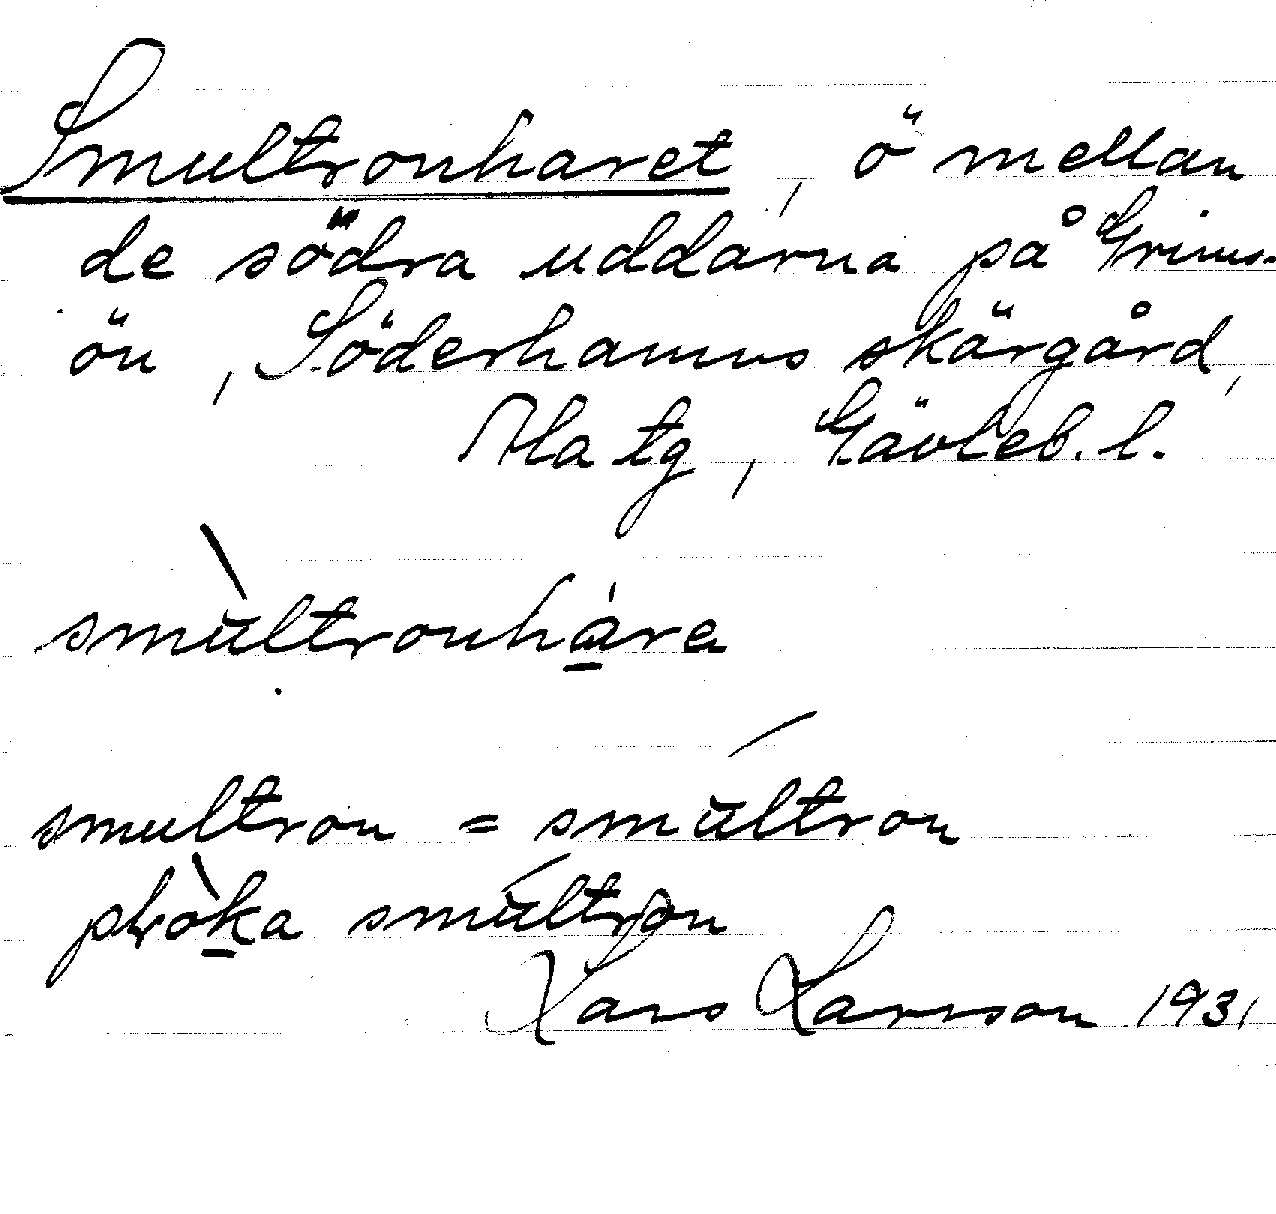 Smultronharet, ö mellan
de södra uddarna på Grims-
ön, Söderhamns skärgård,
Ala tg, Gävleb. l.
smùltronháre
smultron = smúltron
plròka smúltron
Lars Larsson 1931